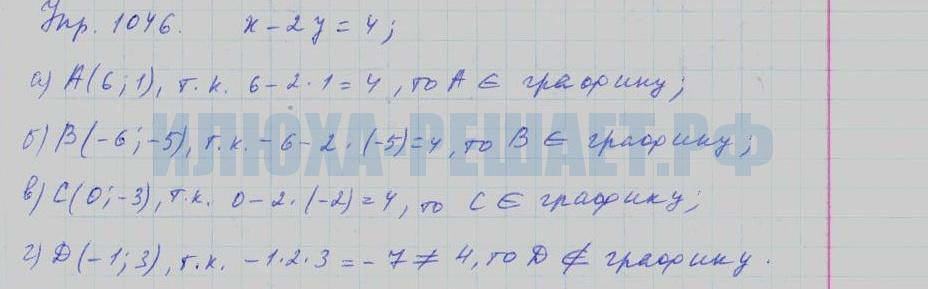 Упр. 1046. x - 2y = 4;
а) A(6; 1), т.к. 6 - 2·1 = 4, то A ∈ графику;
б) B(-6; -5), т.к. -6 - 2·(-5) = 4, то B ∈ графику;
ИЛЮХА-РЕШАЕТ.РФ
в) C(0; -3), т.к. 0 - 2·(-2) = 4, то C ∈ графику;
г) D(-1; 3), т.к. -1·2·3 = -7 ≠ 4, то D ∉ графику.